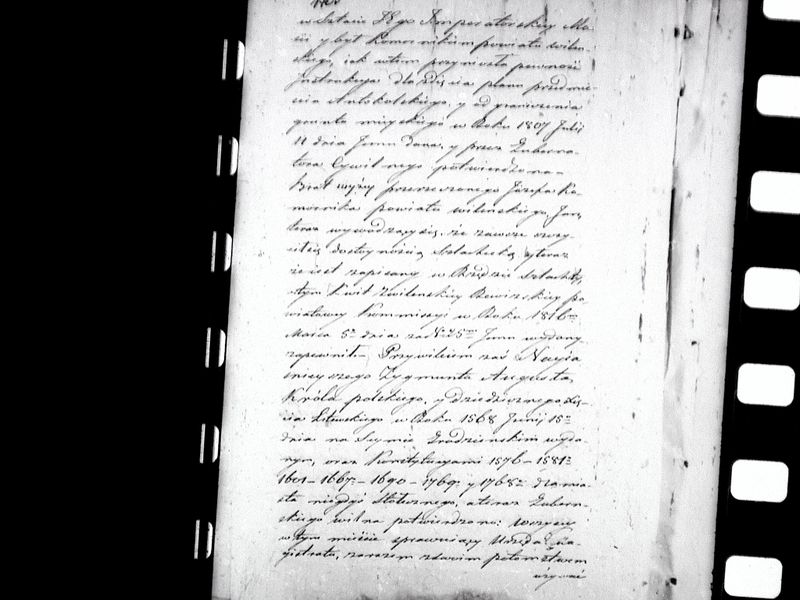 w Sztacie JEgo Imperatorskiey Mo-
ści y był Komornikiem powiatu wileń-
skiego, iak o tem przyniosła pewność
Instrukcya dla zdięcia planu przedmie-
ścia Antokolskiego, y od graniczenia
gruntu mieyskiego w Roku 1807 Julij
11 dnia Jemu dana, y przez Guberna-
tora Cywilnego potwierdzona-
Brat wyżey przerzeczonego Józefa Ko-
mornika powiatu wileńskiego, Jan,
teraz wywodzący się, że zawsze szczy-
cił się dostoynością Szlachecką, y teraz
że iest zapisany w Rzędzie Szlachty,
o tym Kwit Wileńskiey Rewizskiey po-
wiatowey Kommissyi w Roku 1816
Marca 5 dnia za N Jemu wydany
zapewnił- Przywileiem zaś Nayia-
śnieyszego Zygmunta Augusta,
Króla polskiego, y dziedzicznego Xię-
cia Litewskiego w Roku 1568 Junij 15
dnia na Seymie Grodzieńskim wyda-
nym, oraz Konstytucyami 1576 - 1581
1601 - 1667 - 1690 - 1764 y 1768 dla mia-
sta niegdyś Stołecznego, a teraz Guberń-
skiego wilna potwierdzono: wszyscy
w tym mieście sprawuiący Urzęda Ma-
gistratu, zarazem z swoim potomstwem
używać